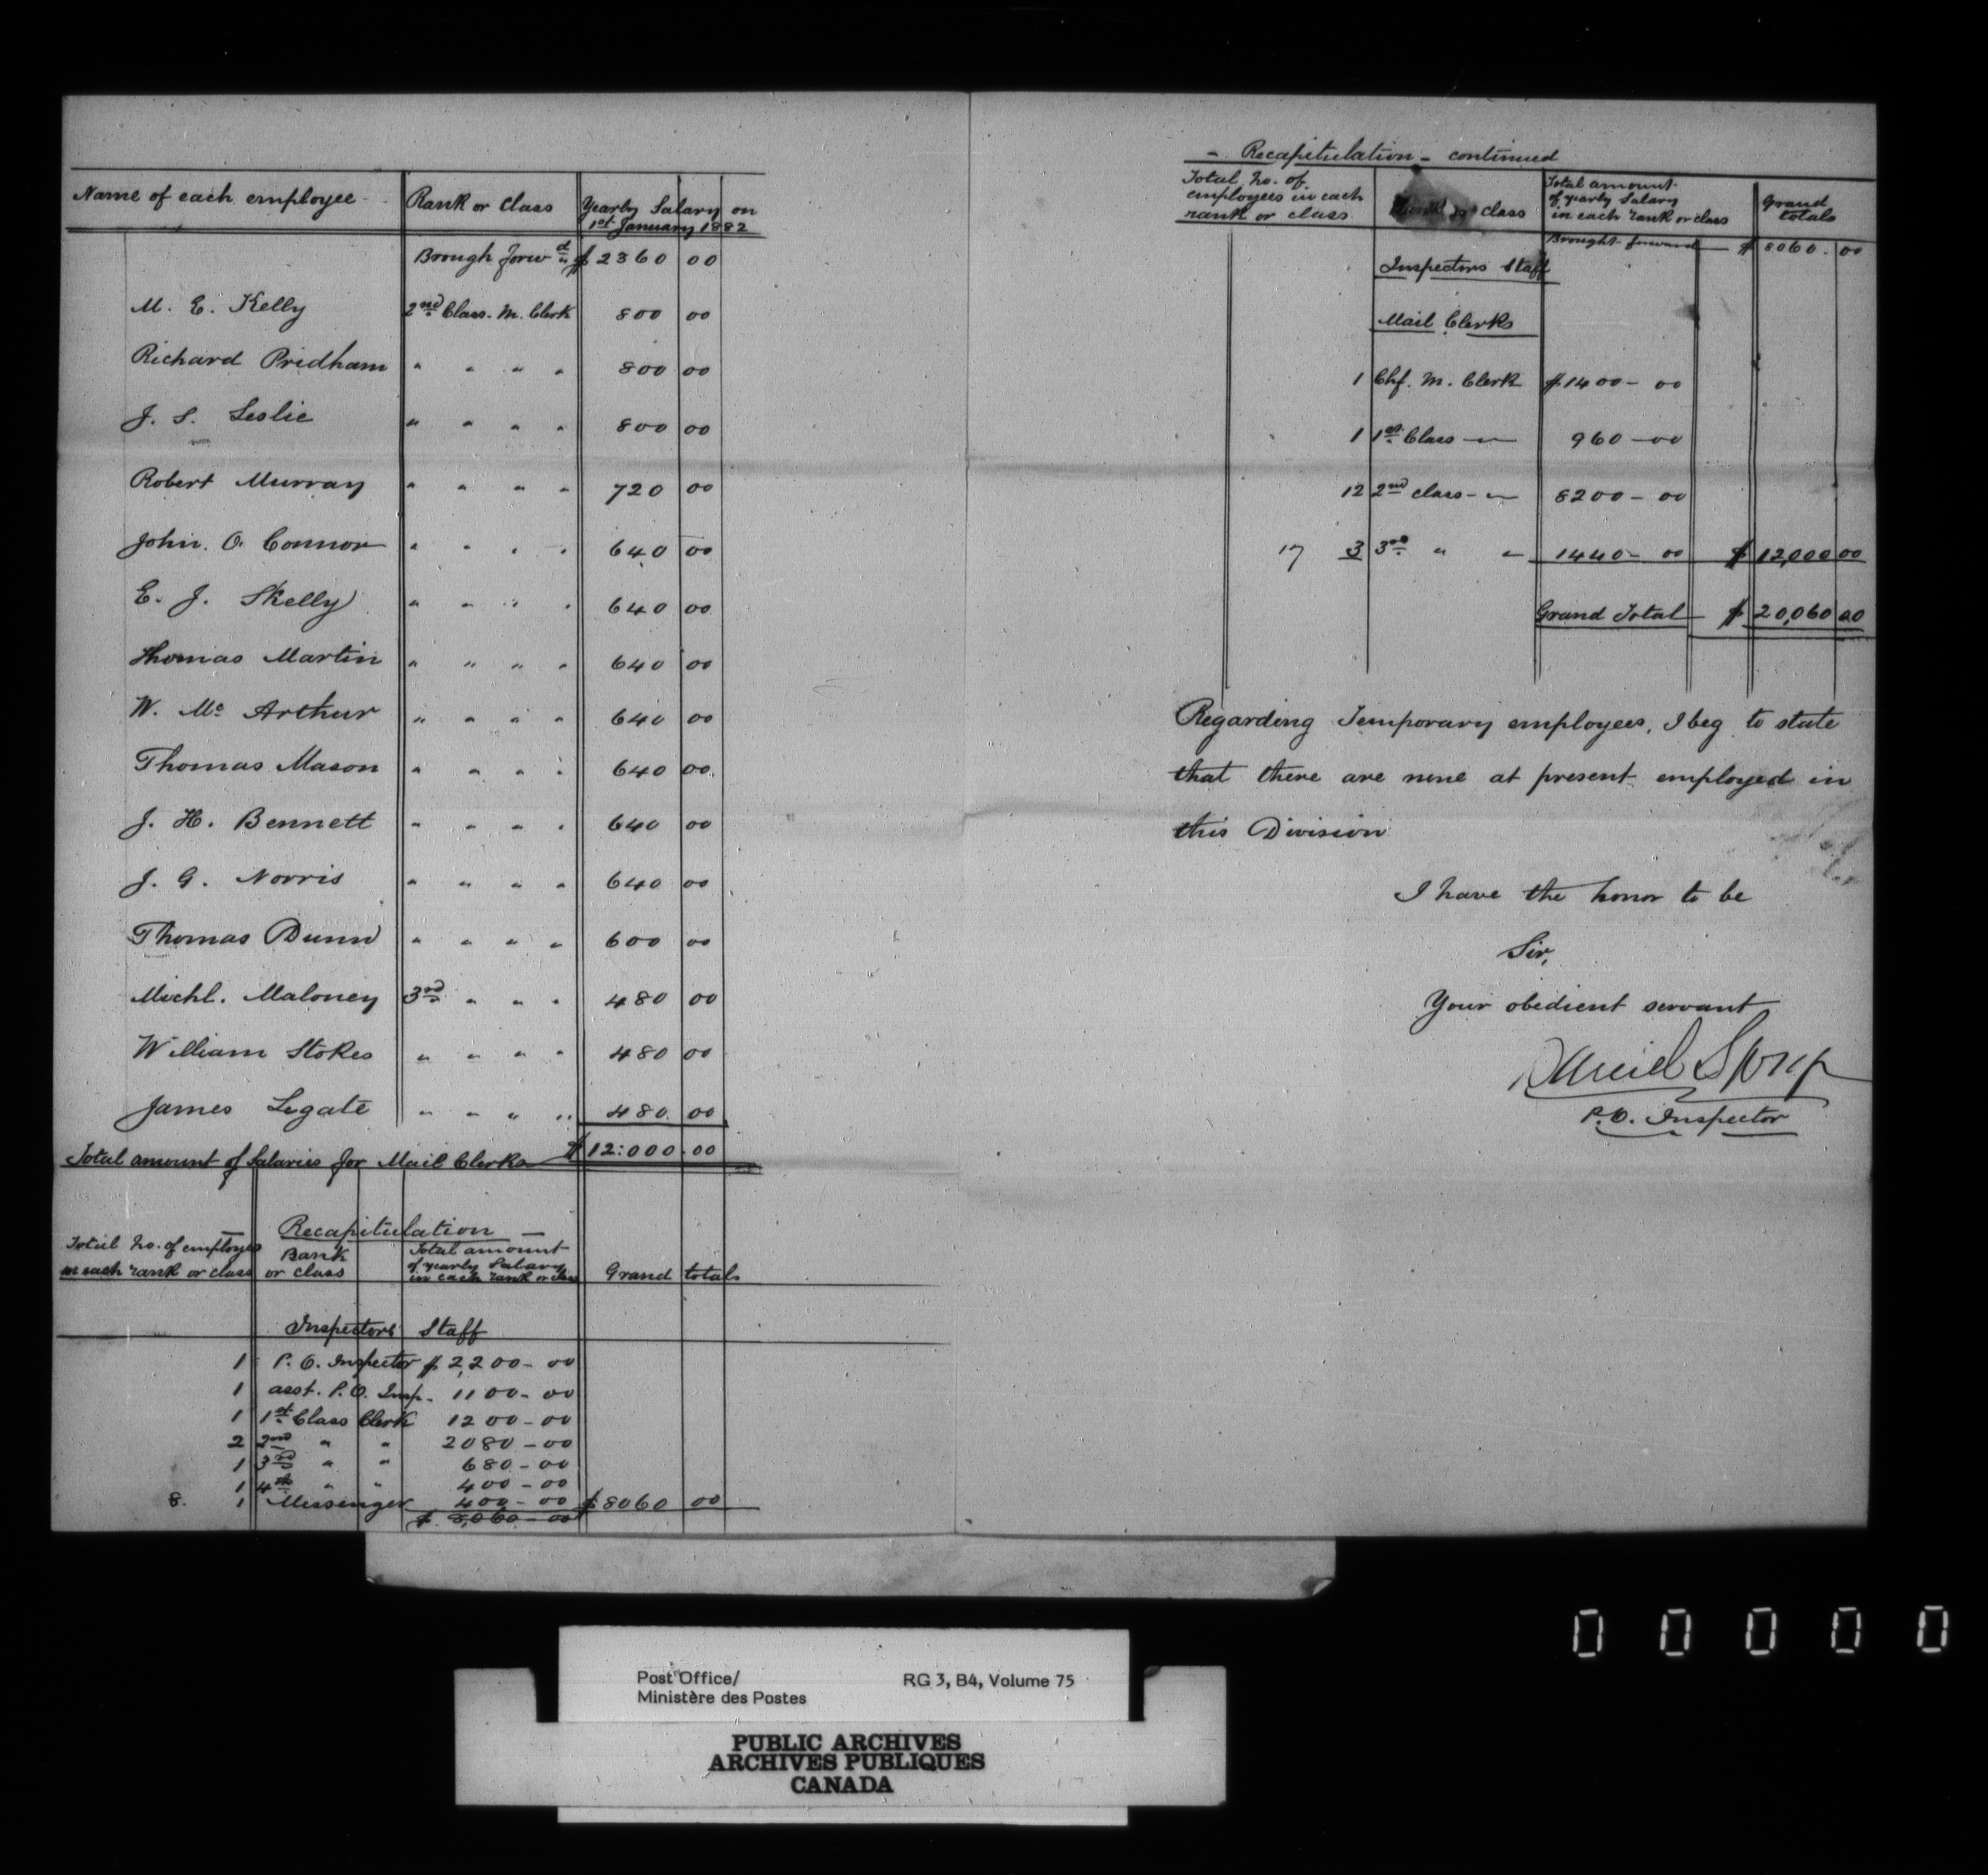 Name of each employee Rank or Class Yearly Salary on 1st January 1882
Brough forwd $ 2360 00
M. E. Kelly 2nd Class. M. Clerk 800 00
Richard Pridham " " " " 800 00
J. S. Leslie " " " " 800 00
Robert Murray " " " " 720 00
John. O. Connor " " " " 640 00
E. J. Skelly " " " " 640 00
Thomas Martin " " " " 640 00
W. Mc Arthur " " " " 640 00
Thomas Mason " " " " 640 00
J. H. Bennett " " " " 640 00
J. G. Norris " " " " 640 00
Thomas Dunn " " " " 600 00
Michl. Maloney 3rd " " " 480 00
William Stokes " " " " 480 00
James Legate " " " " 480 00
Total amount of Salaries for Mail Clerks $ 12:000.00
— Recapitulation —
Total No. of employes in each rank or class Rank or class Total amount of yearly Salary in each rank or class Grand totals
Inspectors Staff
1 P. O. Inspector $ 2,200 - 00
1 asst. P. O. Insp. 1100 - 00
1 1st Class Clerk 1200 - 00
2 2nd " " 2080 - 00
1 3rd " " 680 - 00
1 4th " " 400 - 00
8. 1 Messenger 400 - 00 $ 8060 00
$ 8,060 - 00
- Recapitulation - continued
Total No. of employees in each rank or class Rank or class Total amount of yearly Salary in each rank or class Grand totals
Brought forward $ 8060.00
Inspectors Staff
Mail Clerks
1 Chf. M. Clerk $ 1400 - 00
1 1st Class " 960 - 00
12 2nd class - " 8200 - 00
17 3 3rd " " 1440 - 00 $ 12,000 00
Grand Total $ 20,060 00
Regarding Temporary employees, I beg to state
that there are none at present employed in
this Division
I have the honor to be
Sir,
Your obedient servant
Daniel Spry
P.O. Inspector
00000
Post Office/ RG 3, B4, Volume 75
Ministère des Postes
PUBLIC ARCHIVES
ARCHIVES PUBLIQUES
CANADA